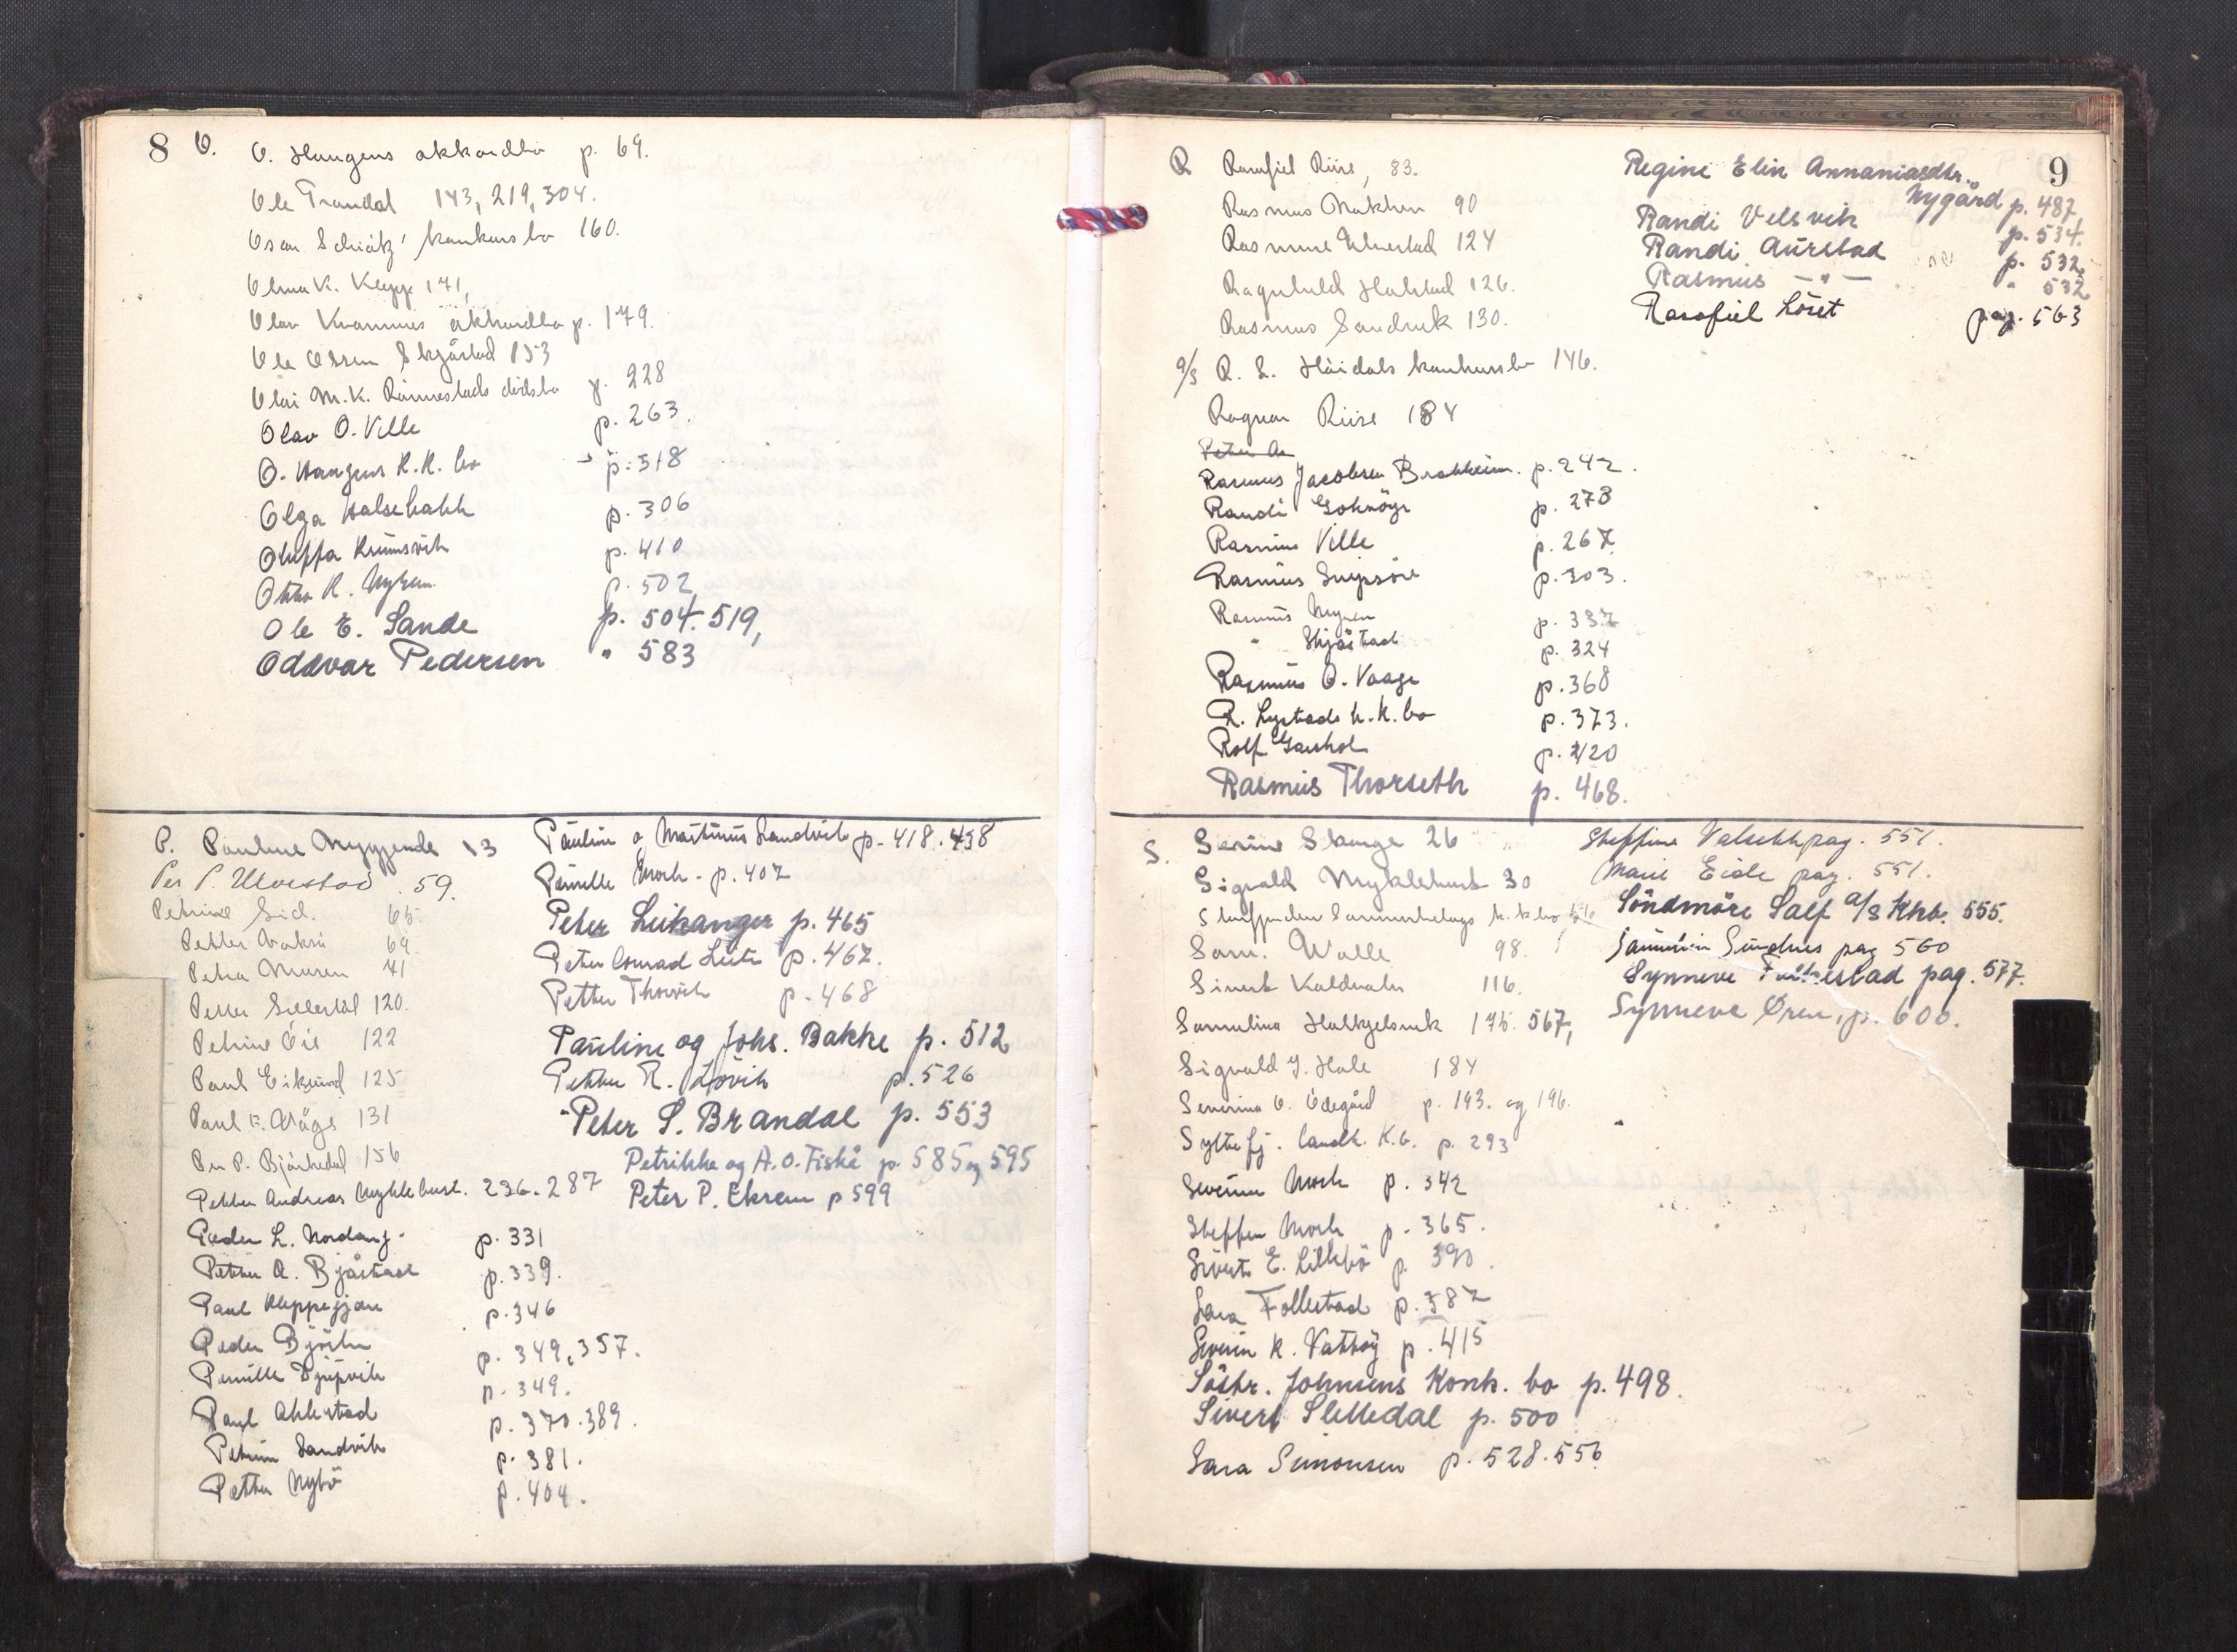 8 O. O. Haugens akkordbo p. 69.
Ole Trandal 143, 219, 304.
Oscar Schiøtz' konkursbo 160.
Olma K. Klepp 171,
Olav Kvammes akkordbo p. 179.
Ole Olsen Skjåstad 153
Olai M. K. Rönnestads dödsbo p. 228
Olav O. Ville p. 263.
O. Haugens K.K. bo p. 318
Olga Halsebakk p. 306
Oluffa Krumsvik p. 410
Otto R. Myren p. 502
Ole E. Sande p. 504. 519,
Oddvar Pedersen " 583
P. Pauline Myggende 13
Per P. Ulvestad 59.
Petrine Eid. 65
Petter Vaksø 69
Petra Muren 71
Petter Sætertål 120.
Petrine Öie 122
Paul Eiksund 125
Paul R. Våge 131
Per P. Bjørkedal 156
Petter Andreas Myklebust. 236. 287
Peder L. Nordang. p. 331
Petter A. Bjåstad p. 339.
Paul Kleppegjære p. 346
Peder Björlu p. 349, 357.
Pernille Djupvik p. 349.
Paul Ahlestad p. 370. 389.
Petrine Sandvik p. 381.
Petter Nybö p. 404.
Pauline o Martinus Sandvik p. 418. 438
Pernille Mork. p. 407
Peter Leikanger p. 465
Peter Conrad Leite p. 467.
Petter Thorvik p. 468
Pauline og Johs. Bakke p. 512
Petter R. Lovik p. 526
Peter S. Brandal p. 553
Petrikke og A. O. Fiskå p. 585 og 595
Peter P. Ekrem p 599
9
R Rasafiel Riise, 83.
Rasmus Nakken 90
Rasmus Ulvestad 124
Ragnhild Halstad 126.
Rasmus Sandvik 130.
9/3 R. L. Höidals konkursbo 146.
Ragnar Riise 184
Peter A
Rasmus Jacobsen Brakheim. p. 242.
Randi Goksöyr p. 273
Rasmus Ville p. 267.
Rasmus Snipsöir p. 303.
Rasmus Myren p. 337
" Skjåstad p. 324
Rasmus O. Vaage p. 368
R. Lystads k.k. bo p. 373.
Rolf Garshol p. 420
Rasmus Thorseth p. 468.
Regine Elin Annaniasdtr.
Nygård p. 487,
Randi Velsvik p. 534.
Randi Aurstad p. 532.
Rasmus — " — " 532
Rasafiel Löset pag. 563
S. Serine Stange 26
Sigvald Myklebust 30
Sam. Walle 98.
Sivert Kaldvatn 116.
Samuline Halkjelsvik 175. 567,
Sigvald J. Hole 184
Severina O. Ödegård p. 193. og 196.
Syltefj. landh. K.b. p. 293
Severine Mork p. 342
Steffen Mork p. 365.
Siverts E. Lillebö p. 390.
Sara Follestad p. 387
Severin K. Vattöy p. 415
Söstr. Johnsens Konk. bo p. 498.
Sivert Slettedal p. 500
Sara Simonsen p. 528. 556
Steffine Valsekk pag. 551.
Marie Eide pag. 551.
Söndmöre Salf a/s Khb. 555.
pag 560
Synneve pag. 577.
Synneve Ören, p. 600.